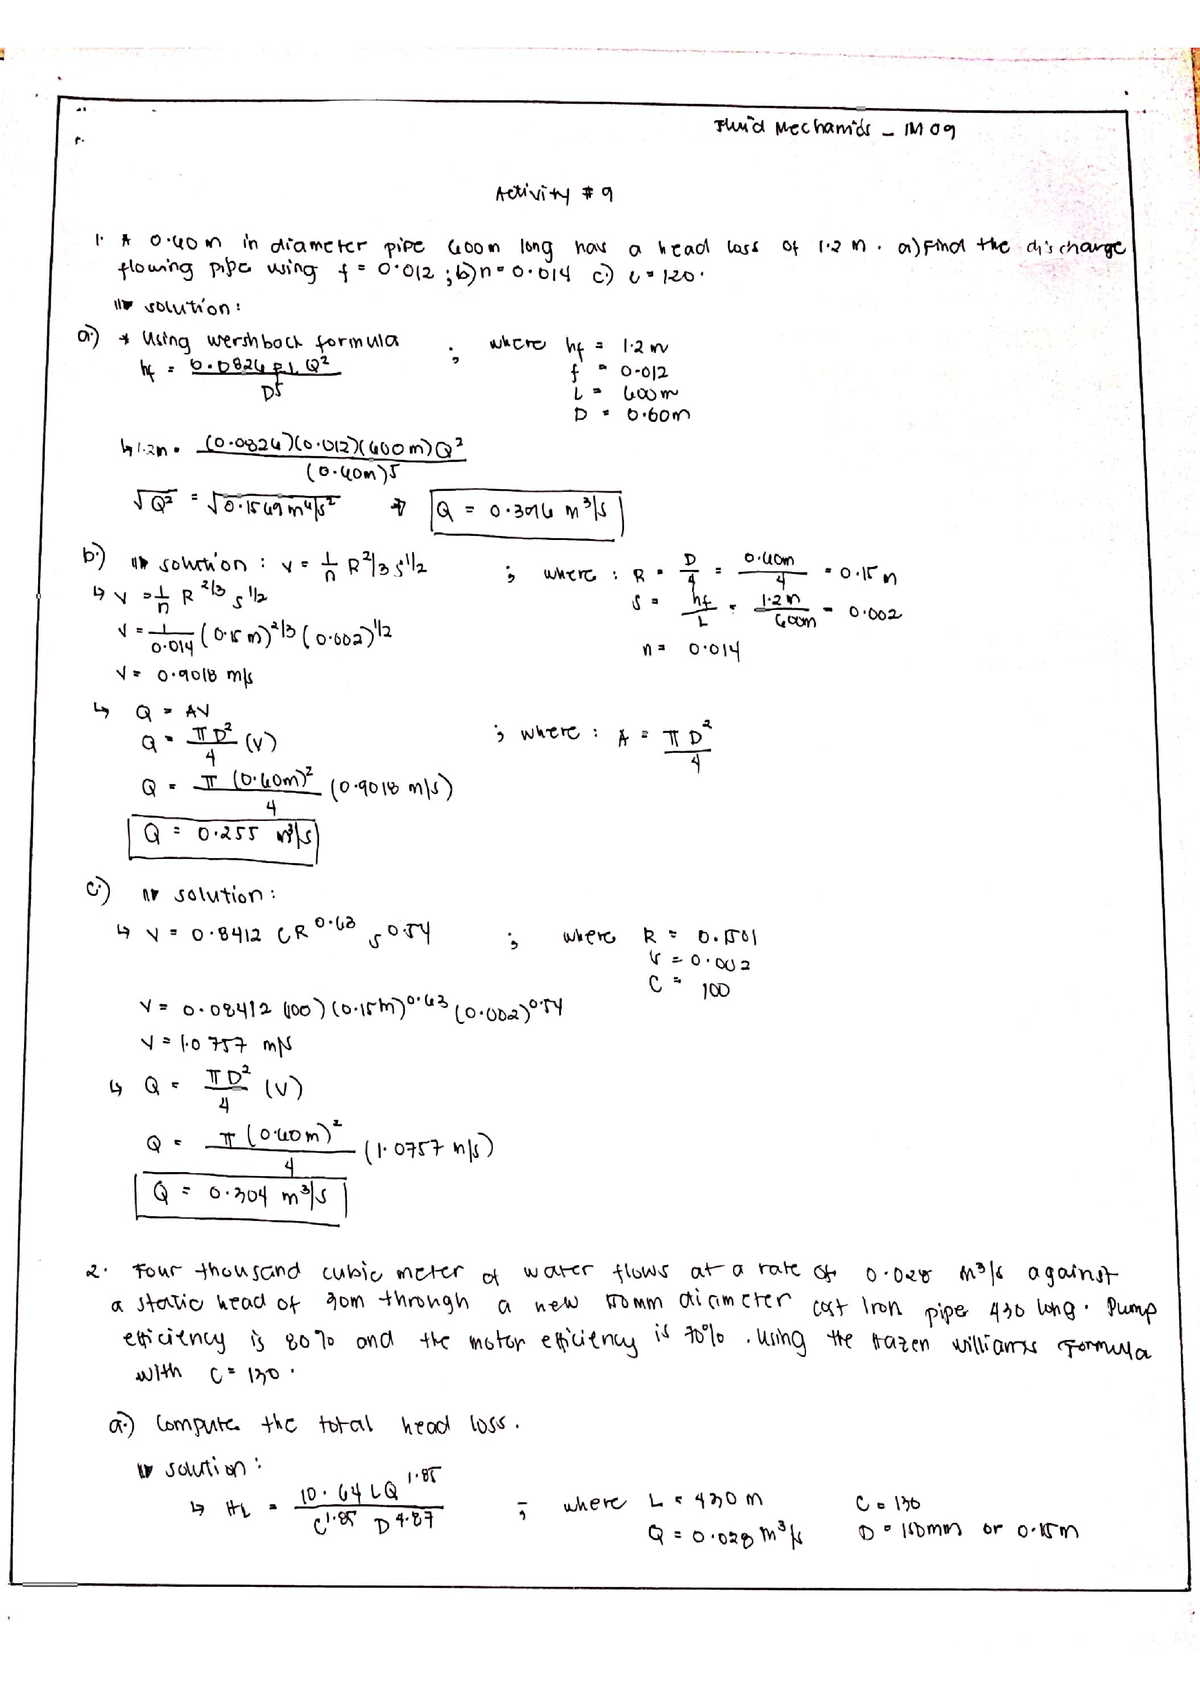 Fluid Mechanics - IM 09
Activity # 9
1. A 0.60 m in diameter pipe 600 m long has a head loss of 1.2 m. a) Find the discharge
flowing pipe using f = 0.012 ; b) n = 0.014 c) c = 120.
solution:
a.) * Using formula ; where hf = 1.2 m
hf = 0.0826 f L Q² / D⁵
f = 0.012
L = 600 m
D = 0.60 m
↳ 1.2m = (0.0826)(0.012)(600 m) Q² / (0.60m)⁵
√Q² = √0.1569 m⁶/s² ⇒ Q = 0.396 m³/s
b.) solution : V = 1/n R^2/3 S^1/2 ; where : R = D/4 = 0.60m/4 = 0.15 m
↳ V = 1/n R^2/3 S^1/2
S = hf/L = 1.2 m/600m = 0.002
V = 1/0.014 (0.15 m)^2/3 (0.002)^1/2
n = 0.014
V = 0.9018 m/s
↳ Q = AV
Q = πD²/4 (V) ; where : A = πD²/4
Q = π (0.60m)²/4 (0.9018 m/s)
Q = 0.255 m³/s
c.) solution :
↳ V = 0.8412 C R^0.63 S^0.54 ; where R = 0.1501
= 0.002
C = 100
V = 0.08412 (100) (0.15m)^0.63 (0.002)^0.54
V = 1.0757 m/s
↳ Q = πD²/4 (V)
Q = π (0.60m)²/4 (1.0757 m/s)
Q = 0.304 m³/s
2. Four thousand cubic meter of water flows at a rate of 0.028 m³/s against
a static head of 30m through a new 150mm diameter cast Iron pipe 430 long. Pump
efficiency is 80% and the motor efficiency is 70%. Using the Hazen williams Formula
with C = 130.
a.) Compute the total head loss.
solution :
↳ HL = 10.64 L Q^1.85 / C^1.85 D^4.87 ; where L = 430 m C = 130
Q = 0.028 m³/s D = 150mm or 0.15m